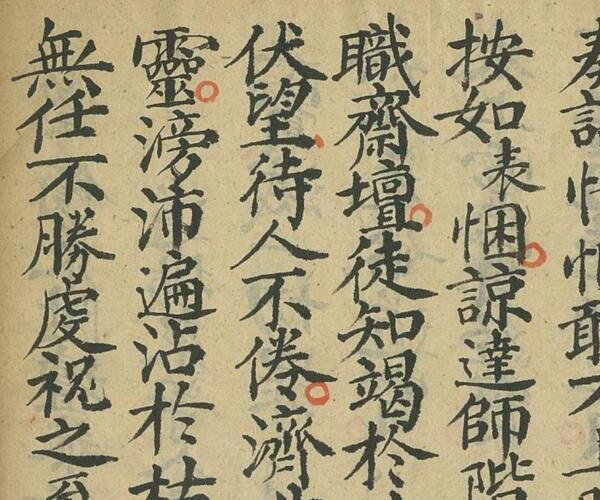 奏請
按如表悃諒達師階
職齋壇徒知竭於
伏望待人不倦濟
靈滂沛遍沾於枯
無任不勝虔祝之至